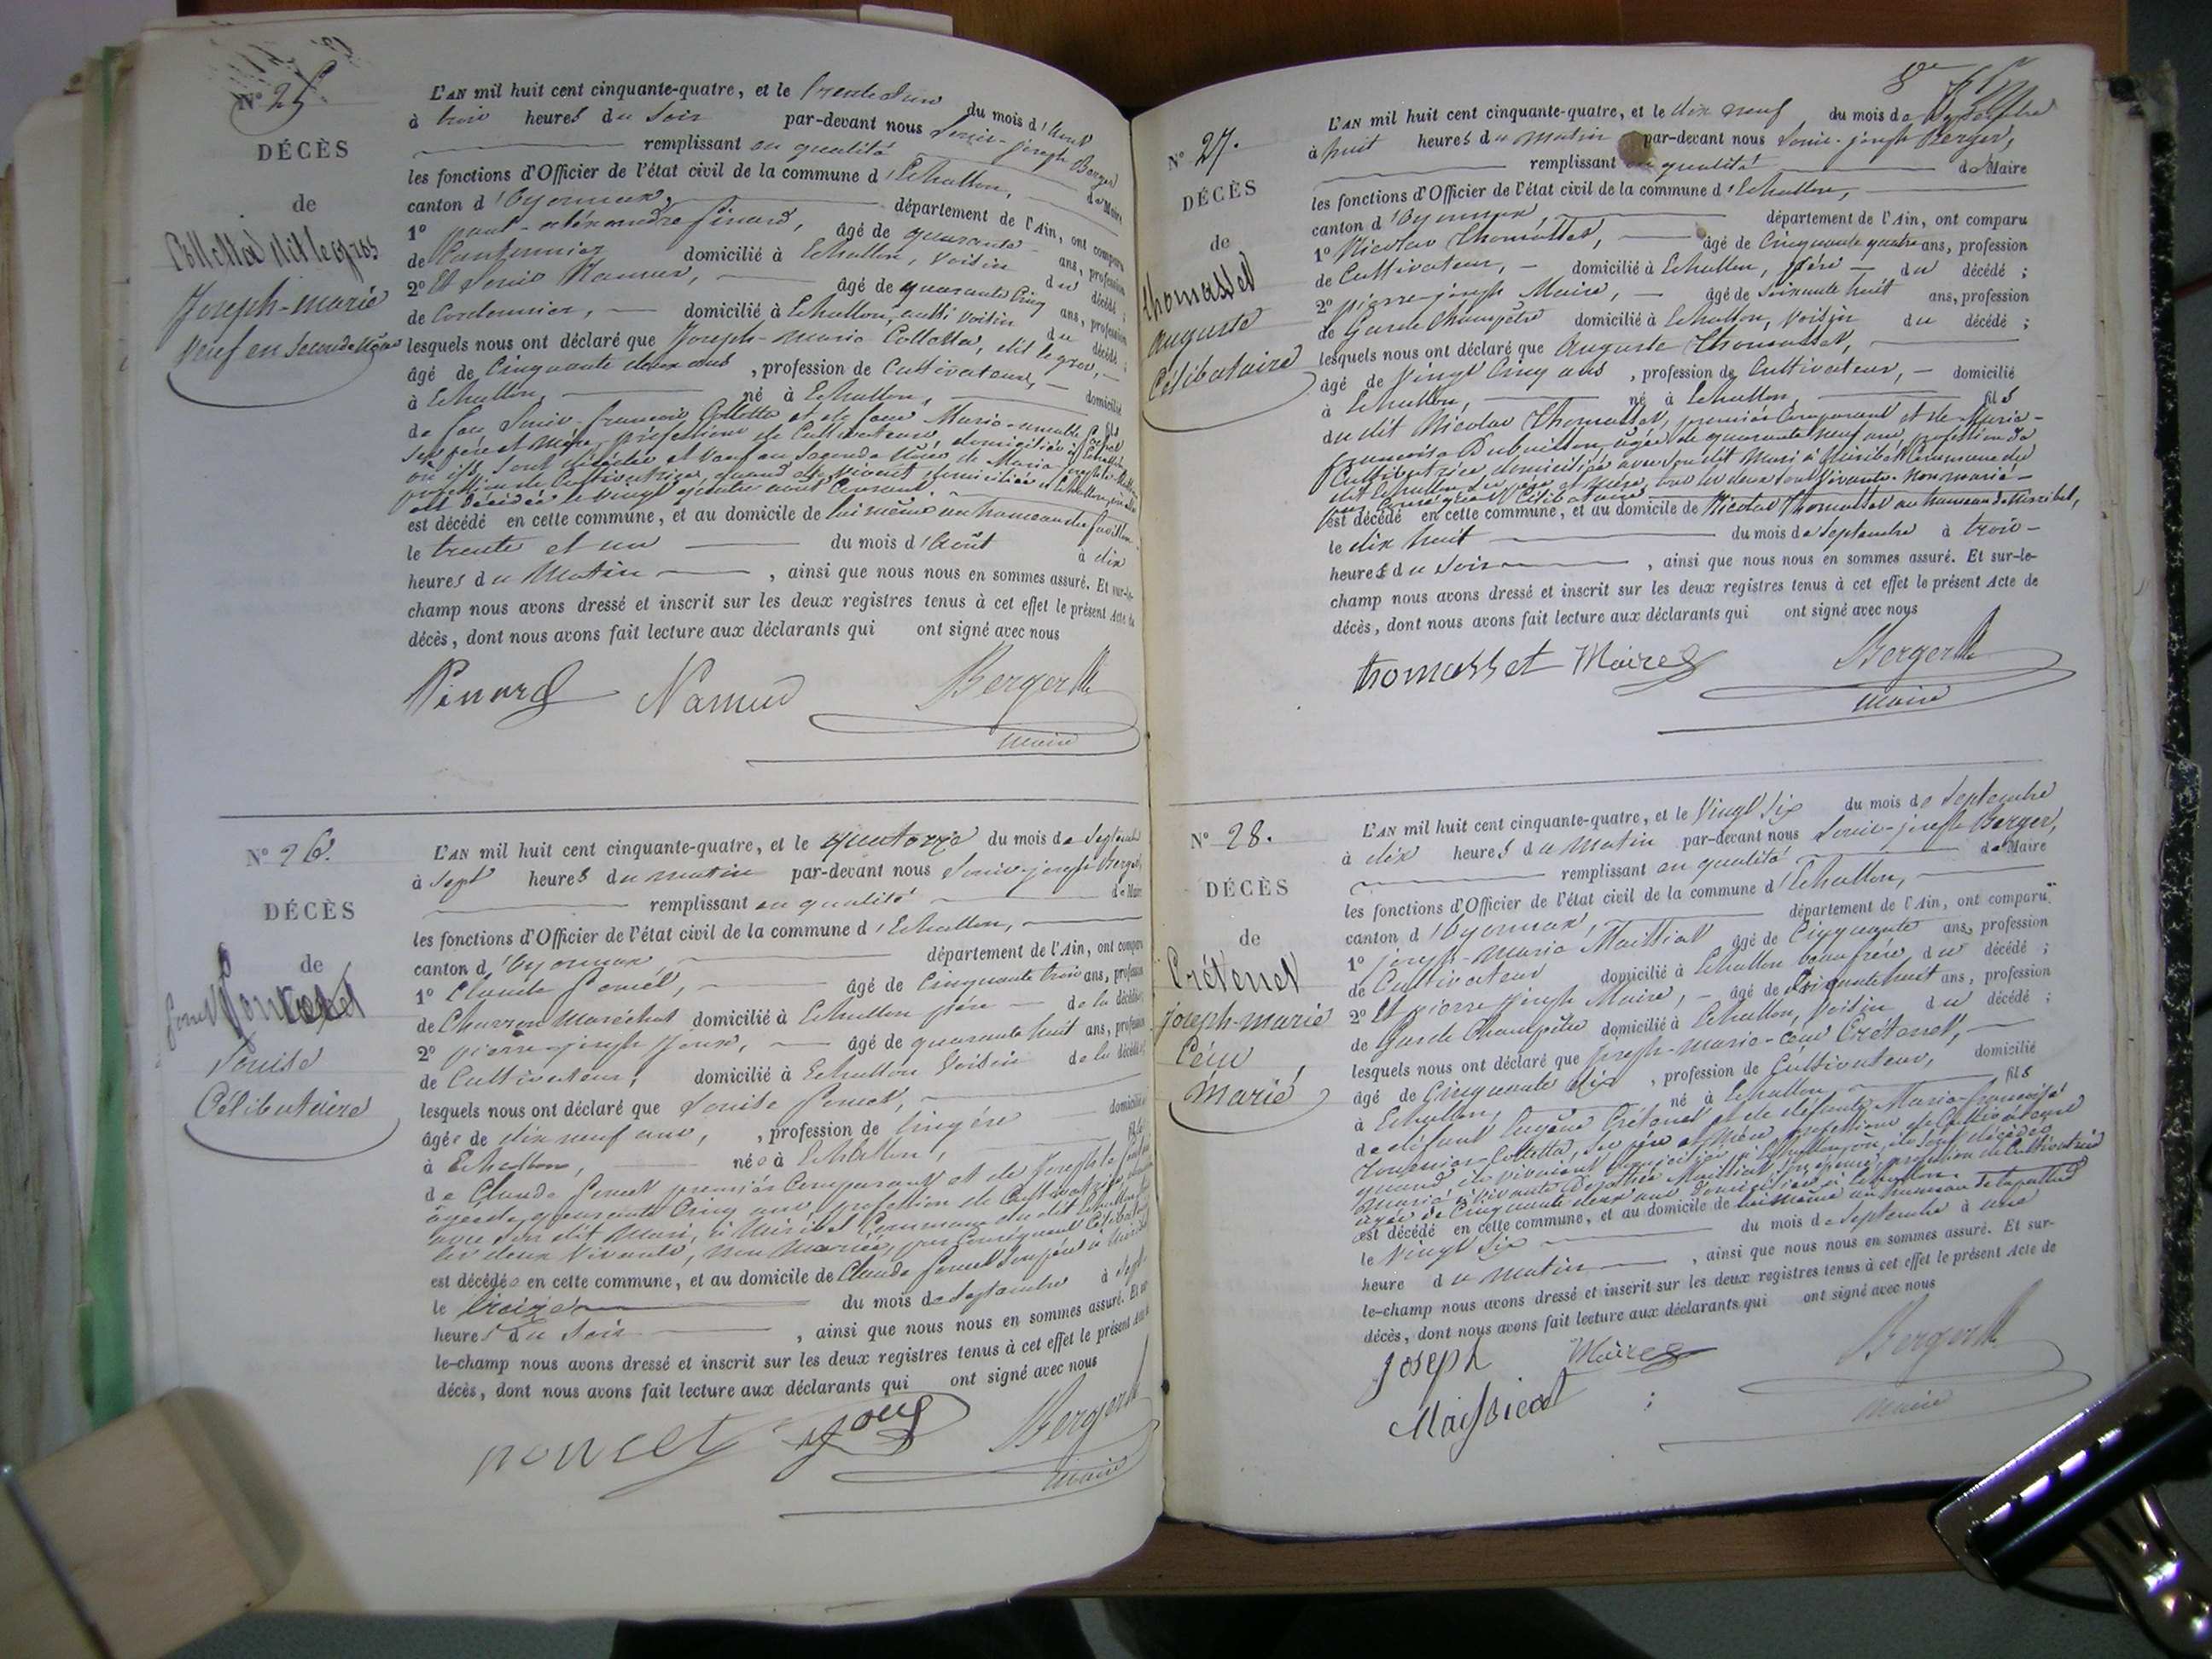 N° 25.
DÉCÈS
de
Collettaz dit le gros
Joseph-marie
veuf en Seconde Noce
L'AN mil huit cent cinquante-quatre, et le trente et un du mois d'Août
à trois heures du Soir par-devant nous Louis-joseph Berger
remplissant en qualité de Maire
les fonctions d'Officier de l'état civil de la commune d'Echallon,
canton d'Oyonnax, département de l'Ain, ont comparu
1° paul-alexandre pinard, âgé de quarante ans, profession
de Cantonnier domicilié à Echallon, Voisin du décédé ;
2° Et Louis Namur, âgé de quarante Cinq ans, profession
de Cordonnier, domicilié à Echallon, aussi Voisin du décédé ;
lesquels nous ont déclaré que Joseph-marie Colletta, dit le gros,
âgé de Cinquante deux ans, profession de Cultivateur, domicilié
à Echallon, né à Echallon, fils
de feu Louis françois Colletta et de feue Marie-
ses père et mère, professions de Cultivateurs, domiciliés à Echallon
où ils sont décédés et Veuf en Seconde Noce de Marie
profession de Cultivatrice, quand elle vivait domiciliée à Echallon,
est décédée le vingt août Courant.
est décédé en cette commune, et au domicile de lui même au hameau du
le trente et un du mois d'Août à dix
heures du Matin, ainsi que nous nous en sommes assuré. Et sur-le-
champ nous avons dressé et inscrit sur les deux registres tenus à cet effet le présent Acte de
décès, dont nous avons fait lecture aux déclarants qui ont signé avec nous
Pinard Namur Berger
maire
N° 26.
DÉCÈS
de
Poncet
Louise
Célibataire
L'AN mil huit cent cinquante-quatre, et le quatorze du mois de Septembre
à Sept heures du matin par-devant nous Louis-joseph Berger,
remplissant en qualité de Maire
les fonctions d'Officier de l'état civil de la commune d'Echallon,
canton d'Oyonnax, département de l'Ain, ont comparu
1° Claude Poncet, âgé de Cinquante trois ans, profession
de Charron Maréchal domicilié à Echallon père de la décédée
2° pierre-joseph Joux, âgé de quarante huit ans, profession
de Cultivateur, domicilié à Echallon Voisin de la décédée
lesquels nous ont déclaré que Louise Poncet,
âgée de dix neuf ans, , profession de lingère domiciliée
à Echallon, née à Echallon, fille
de Claude Poncet premier Comparant et de Josephte
âgée de quarante Cinq ans profession de Cultivatrice,
avec son dit Mari, à Miribel Commune du dit Echallon
les deux Vivants, non Mariée, par Conséquent Célibataire
est décédée en cette commune, et au domicile de Claude Poncet Son père à Miribel
le treize du mois de Septembre à Sept
heures du Soir, ainsi que nous nous en sommes assuré. Et sur-
le-champ nous avons dressé et inscrit sur les deux registres tenus à cet effet le présent Acte de
décès, dont nous avons fait lecture aux déclarants qui ont signé avec nous
poncet Joux Berger
maire
N° 27.
DÉCÈS
de
thomasset
Auguste
Célibataire
L'AN mil huit cent cinquante-quatre, et le dix neuf du mois de Septembre
à huit heures du matin par-devant nous Louis-joseph Berger,
remplissant en qualité de Maire
les fonctions d'Officier de l'état civil de la commune d'Echallon,
canton d'Oyonnax, département de l'Ain, ont comparu
1° Nicolas Thomasset, âgé de Cinquante quatre ans, profession
de Cultivateur, domicilié à Echallon, père du décédé ;
2° pierre-joseph Maire, âgé de Soixante huit ans, profession
de Garde Champêtre domicilié à Echallon, Voisin du décédé ;
lesquels nous ont déclaré que Auguste Thomasset,
âgé de Vingt Cinq ans, profession de Cultivateur, domicilié
à Echallon, né à Echallon fils
du dit Nicolas Thomasset, premier Comparant et de Marie-
françoise Dubuisson, âgée de quarante neuf ans, profession de
Cultivatrice domiciliée avec son dit Mari à Miribel Commune du
dit Echallon Ses père et mère, tous les deux Vivants. Non marié
par Conséquent Célibataire
est décédé en cette commune, et au domicile de Nicolas Thomasset au hameau de Miribel,
le dix huit du mois de Septembre à trois
heures du Soir, ainsi que nous nous en sommes assuré. Et sur-le-
champ nous avons dressé et inscrit sur les deux registres tenus à cet effet le présent Acte de
décès, dont nous avons fait lecture aux déclarants qui ont signé avec nous
thomasset Maire Berger
maire
N° 28.
DÉCÈS
de
Crétenet
joseph-marie
Céar
Marié
L'AN mil huit cent cinquante-quatre, et le Vingt Six du mois de Septembre
à dix heures du matin par-devant nous Louis-joseph Berger,
remplissant en qualité de Maire
les fonctions d'Officier de l'état civil de la commune d'Echallon,
canton d'Oyonnax, département de l'Ain, ont comparu
1° joseph-marie Maissiat âgé de Cinquante ans, profession
de Cultivateur domicilié à Echallon beau frère du décédé ;
2° Et pierre-joseph Maire, âgé de Soixante huit ans, profession
de Garde Champêtre domicilié à Echallon, Voisin du décédé ;
lesquels nous ont déclaré que Joseph-marie-Céar Crétenet,
âgé de Cinquante Six, profession de Cultivateur, domicilié
à Echallon, né à Echallon fils
de défunt Crétenet et de défunte Marie françoise
Colletta, Ses père et Mère, professions de Cultivateurs
quand ils vivaient domiciliés à Echallon, où ils sont décédés
Marié à Vivante Maissiat Son épouse, profession de Cultivatrice
âgée de Cinquante deux ans domiciliée à Echallon.
est décédé en cette commune, et au domicile de lui même au hameau de
le Vingt Six du mois de Septembre à une
heure du matin, ainsi que nous nous en sommes assuré. Et sur-
le-champ nous avons dressé et inscrit sur les deux registres tenus à cet effet le présent Acte de
décès, dont nous avons fait lecture aux déclarants qui ont signé avec nous
Joseph Maire Berger
Maissiat maire